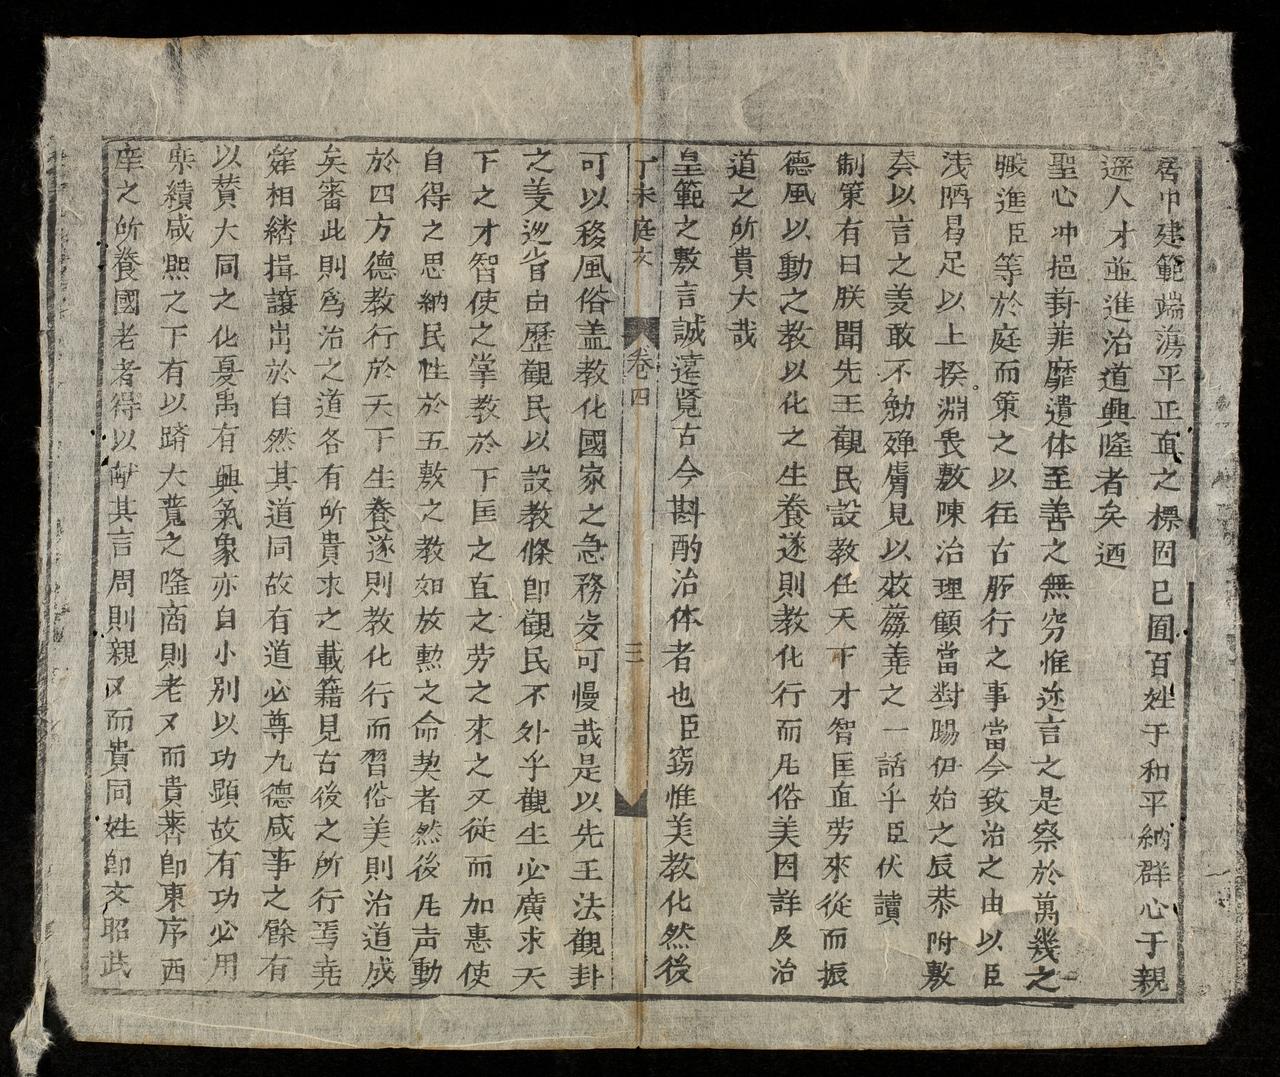 居中建範端蕩平正直之標固已囿百姓于和平納群心于親
遜人才並進治道興隆者矣迺
聖心冲挹葑菲靡遺体至善之無穷惟迩言之是察於萬幾之
暇進臣等於庭而策之以徃古所行之事當今致治之由以臣
浅陋曷足以上揆淵𠂹敷陳治理顧當對敭伊始之辰恭附敷
奏以言之羙敢不勉殚膚見以效蒭荛之一話乎臣伏讀
制策有曰朕聞先王觀民設教任天下才智匡直劳來從而振
德風以動之教以化之生養遂則教化行而凡俗美因詳及治
道之所貴大哉
皇範之敷言誠遠覽古今斟酌治体者也臣窃惟美教化然後
丁未庭文 卷四 三
可以移風俗盖教化國家之急務安可慢哉是以先王法觀卦
之羙廵省由歷觀民以設教條即觀民不外乎觀生必廣求天
下之才智使之掌教於下匡之直之劳之來之又從而加惠使
自得之思納民性於五敷之教如放勲之命契者然後凡声動
於四方德教行於天下生養遂則教化行而習俗美則治道成
矣審此則為治之道各有所貴求之載籍見古後之所行焉堯
舜相繼揖讓出於自然其道同故有道必尊九德咸事之餘有
以賛大同之化夏禹有興氣象亦自小別以功顯故有功必用
庶績咸熙之下有以躋大寛之隆商則老又而貴蓄即東序西
庠之所養國老者得以献其言周則親又而貴同姓即文昭武